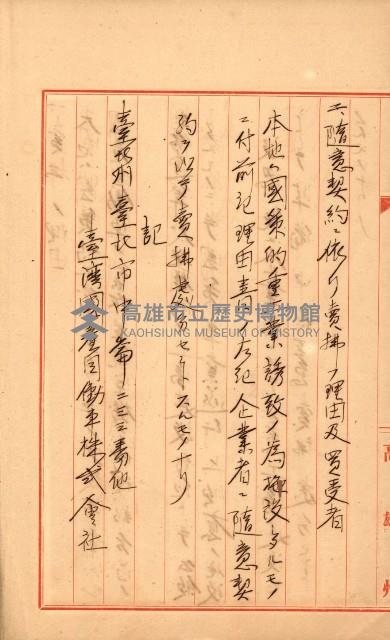 二、隨意契約ニ依リ賣拂ノ理由及買受者
本地ハ國策的重工業誘致ノ為施設タルモノ
ニ付前記理由書左記企業者ニ隨意契
約ヲ以テ賣拂處分セントスルモノナリ
記
臺北州臺北市中崙二三三番地
臺灣國産自働車株式會社
高雄州
高雄市立歷史博物館
KAOHSIUNG MUSEUM OF HISTORY